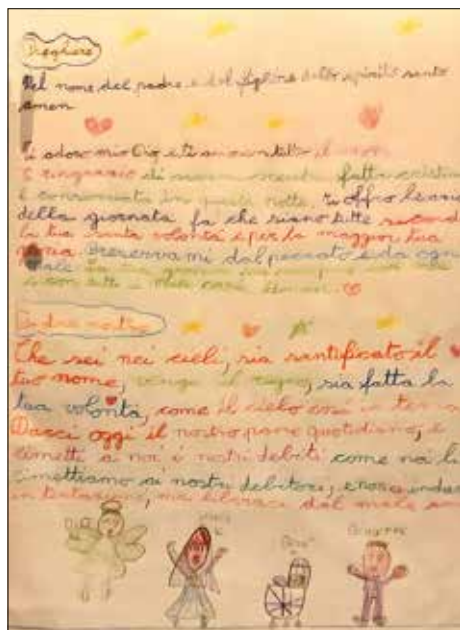 Preghiere
Nel nome del padre e del figlio e dello spirito santo
amen
Ti adoro mio Dio e ti amo con tutto il cuore
ringrazio di avermi creato fatto cristiano
e conservato in questa notte. Ti offro le azioni
della giornata fa che siano tutte secondo
la tua santa volontà e per la maggior tua
gloria. Preservami dal peccato e da ogni
male. La tua grazia sia sempre con me
e con tutti i miei cari. Amen.
Padre nostro
Che sei nei cieli, sia santificato il
tuo nome, venga il regno, sia fatta la
tua volontà, come il cielo così in terra
Dacci oggi il nostro pane quotidiano, e
rimetti a noi i nostri debiti come noi li
rimettiamo ai nostri debitori, e non ci indurre
in tentazione, ma liberaci dal male
Maria
Gesù
Giuseppe